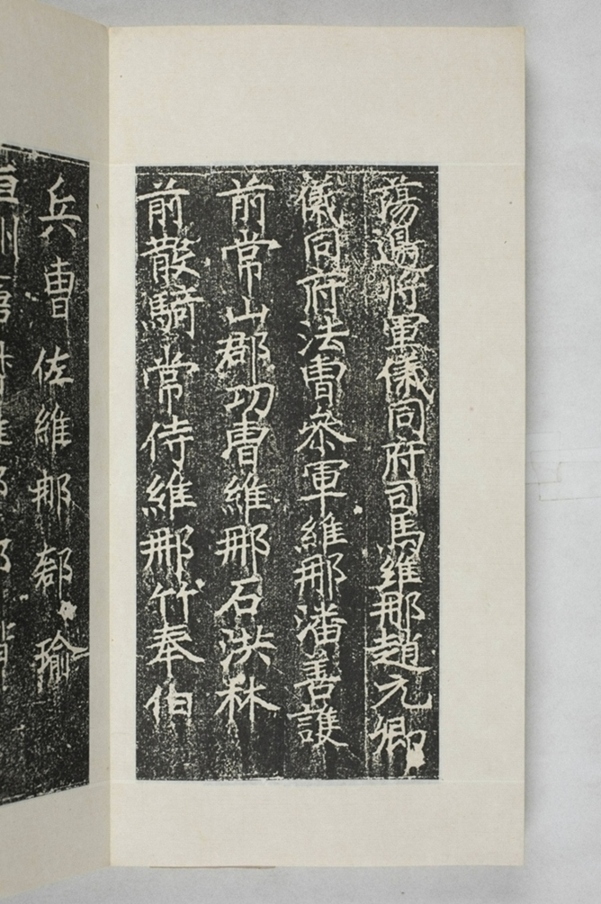 蕩邊將軍儀同府司馬維那趙元卿
儀同府法曹參軍維那潘善護
前常山郡功曹維那石洪林
前散騎常侍維那竹奉伯
兵曹佐維那郗瑜